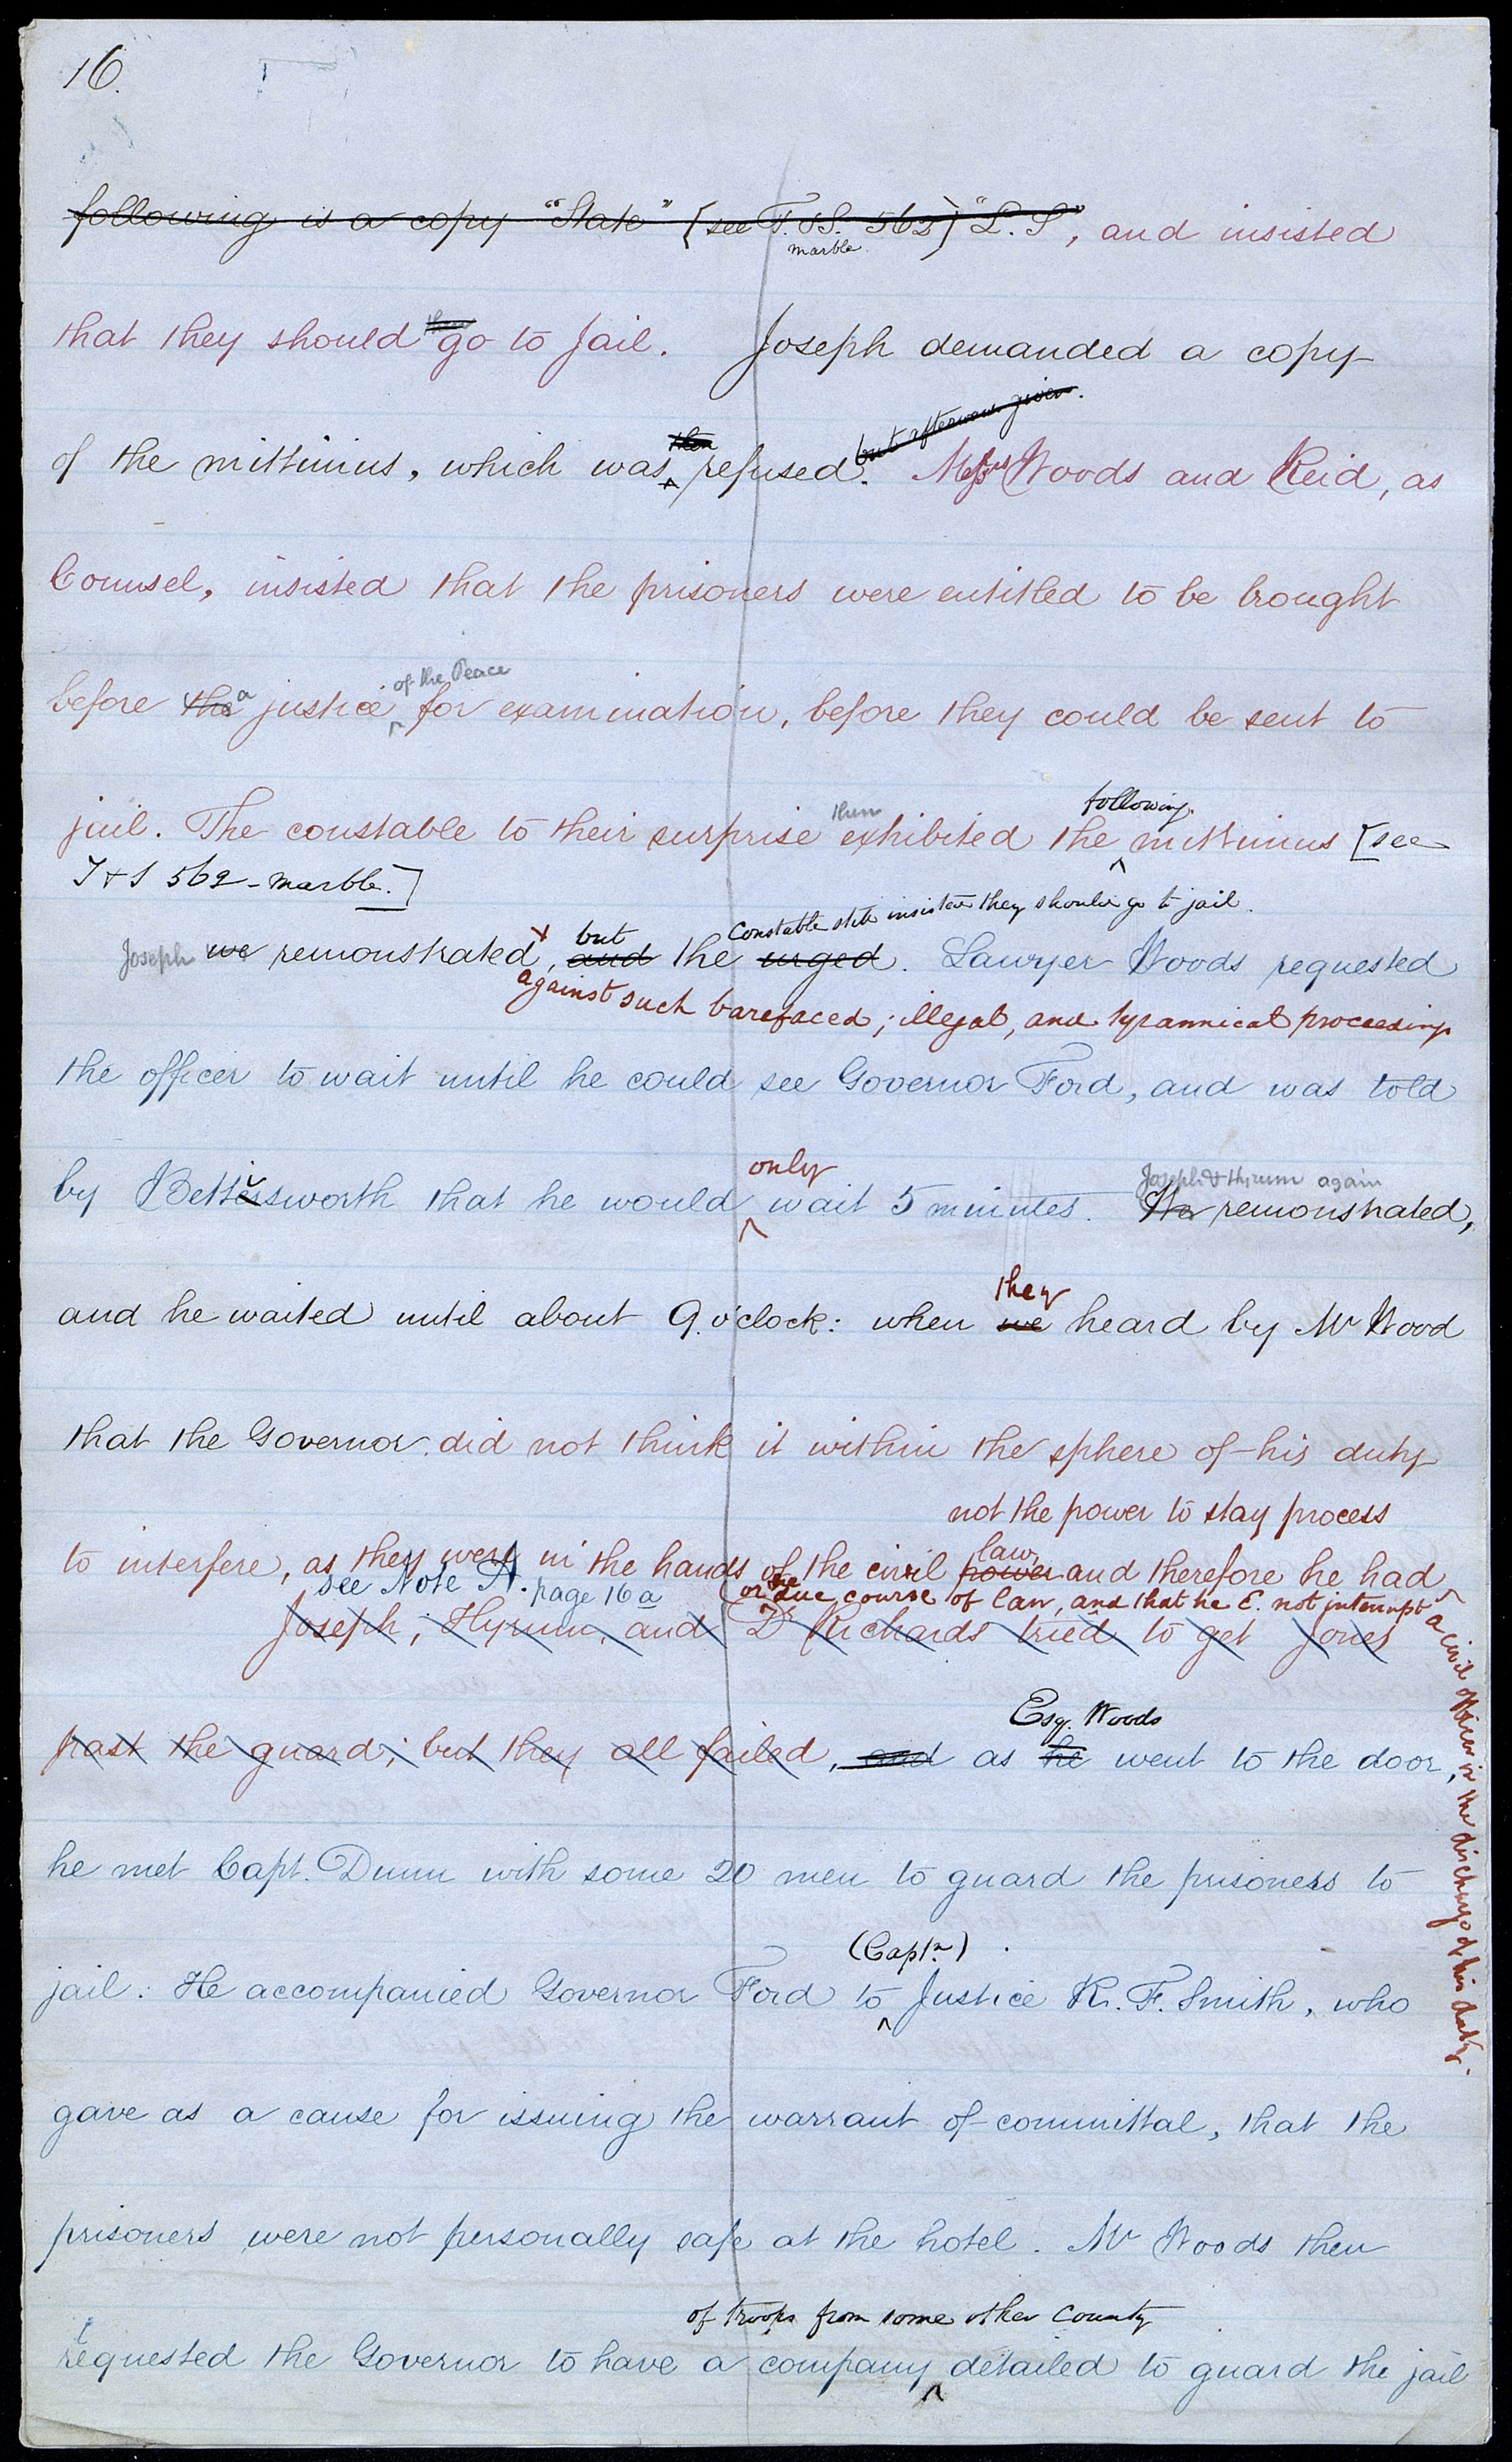 16.
following is a copy "State" [see T. &S. 562] "L. S", and insisted
marble.
that they should they go to Jail. Joseph demanded a copy
then but afterwards given.
of the mittimus, which was refused. Messrs Woods and Reid, as
Counsel, insisted that the prisoners were entitled to be brought
of the Peace
before the a justice for examination, before they could be sent to
then following
jail. The constable to their surprise exhibited the mittimus [see
T & S 562 - marble.]
but Constable still insisted they should go to jail.
Joseph we remonstrated, and the urged. Lawyer Woods requested
against such barefaced, illegal, and tyrannical proceedings
the officer to wait until he could see Governor Ford, and was told
only Joseph & Hyrum again
by Bettersworth that he would wait 5 minutes. We remonstrated,
they
and he waited until about 9 o'clock: when we heard by Mr Wood
that the Governor did not think it within the sphere of his duty
not the power to stay process
law,
to interfere, as they were in the hands of the civil power and therefore he had
see Note A. page 16a (or the due course of law, and that he C. not interrupt
a civil officer in the discharge of his duty.
Joseph, Hyrum, and Dr Richards tried to get Jones
Esq. Woods
past the guard; but they all failed, and as he went to the door,
he met Capt. Dunn with some 20 men to guard the prisoners to
(Captn.)
jail: He accompanied Governor Ford to Justice R. F. Smith, who
gave as a cause for issuing the warrant of committal, that the
prisoners were not personally safe at the hotel. Mr Woods then
of troops from some other County
requested the Governor to have a company detailed to guard the jail